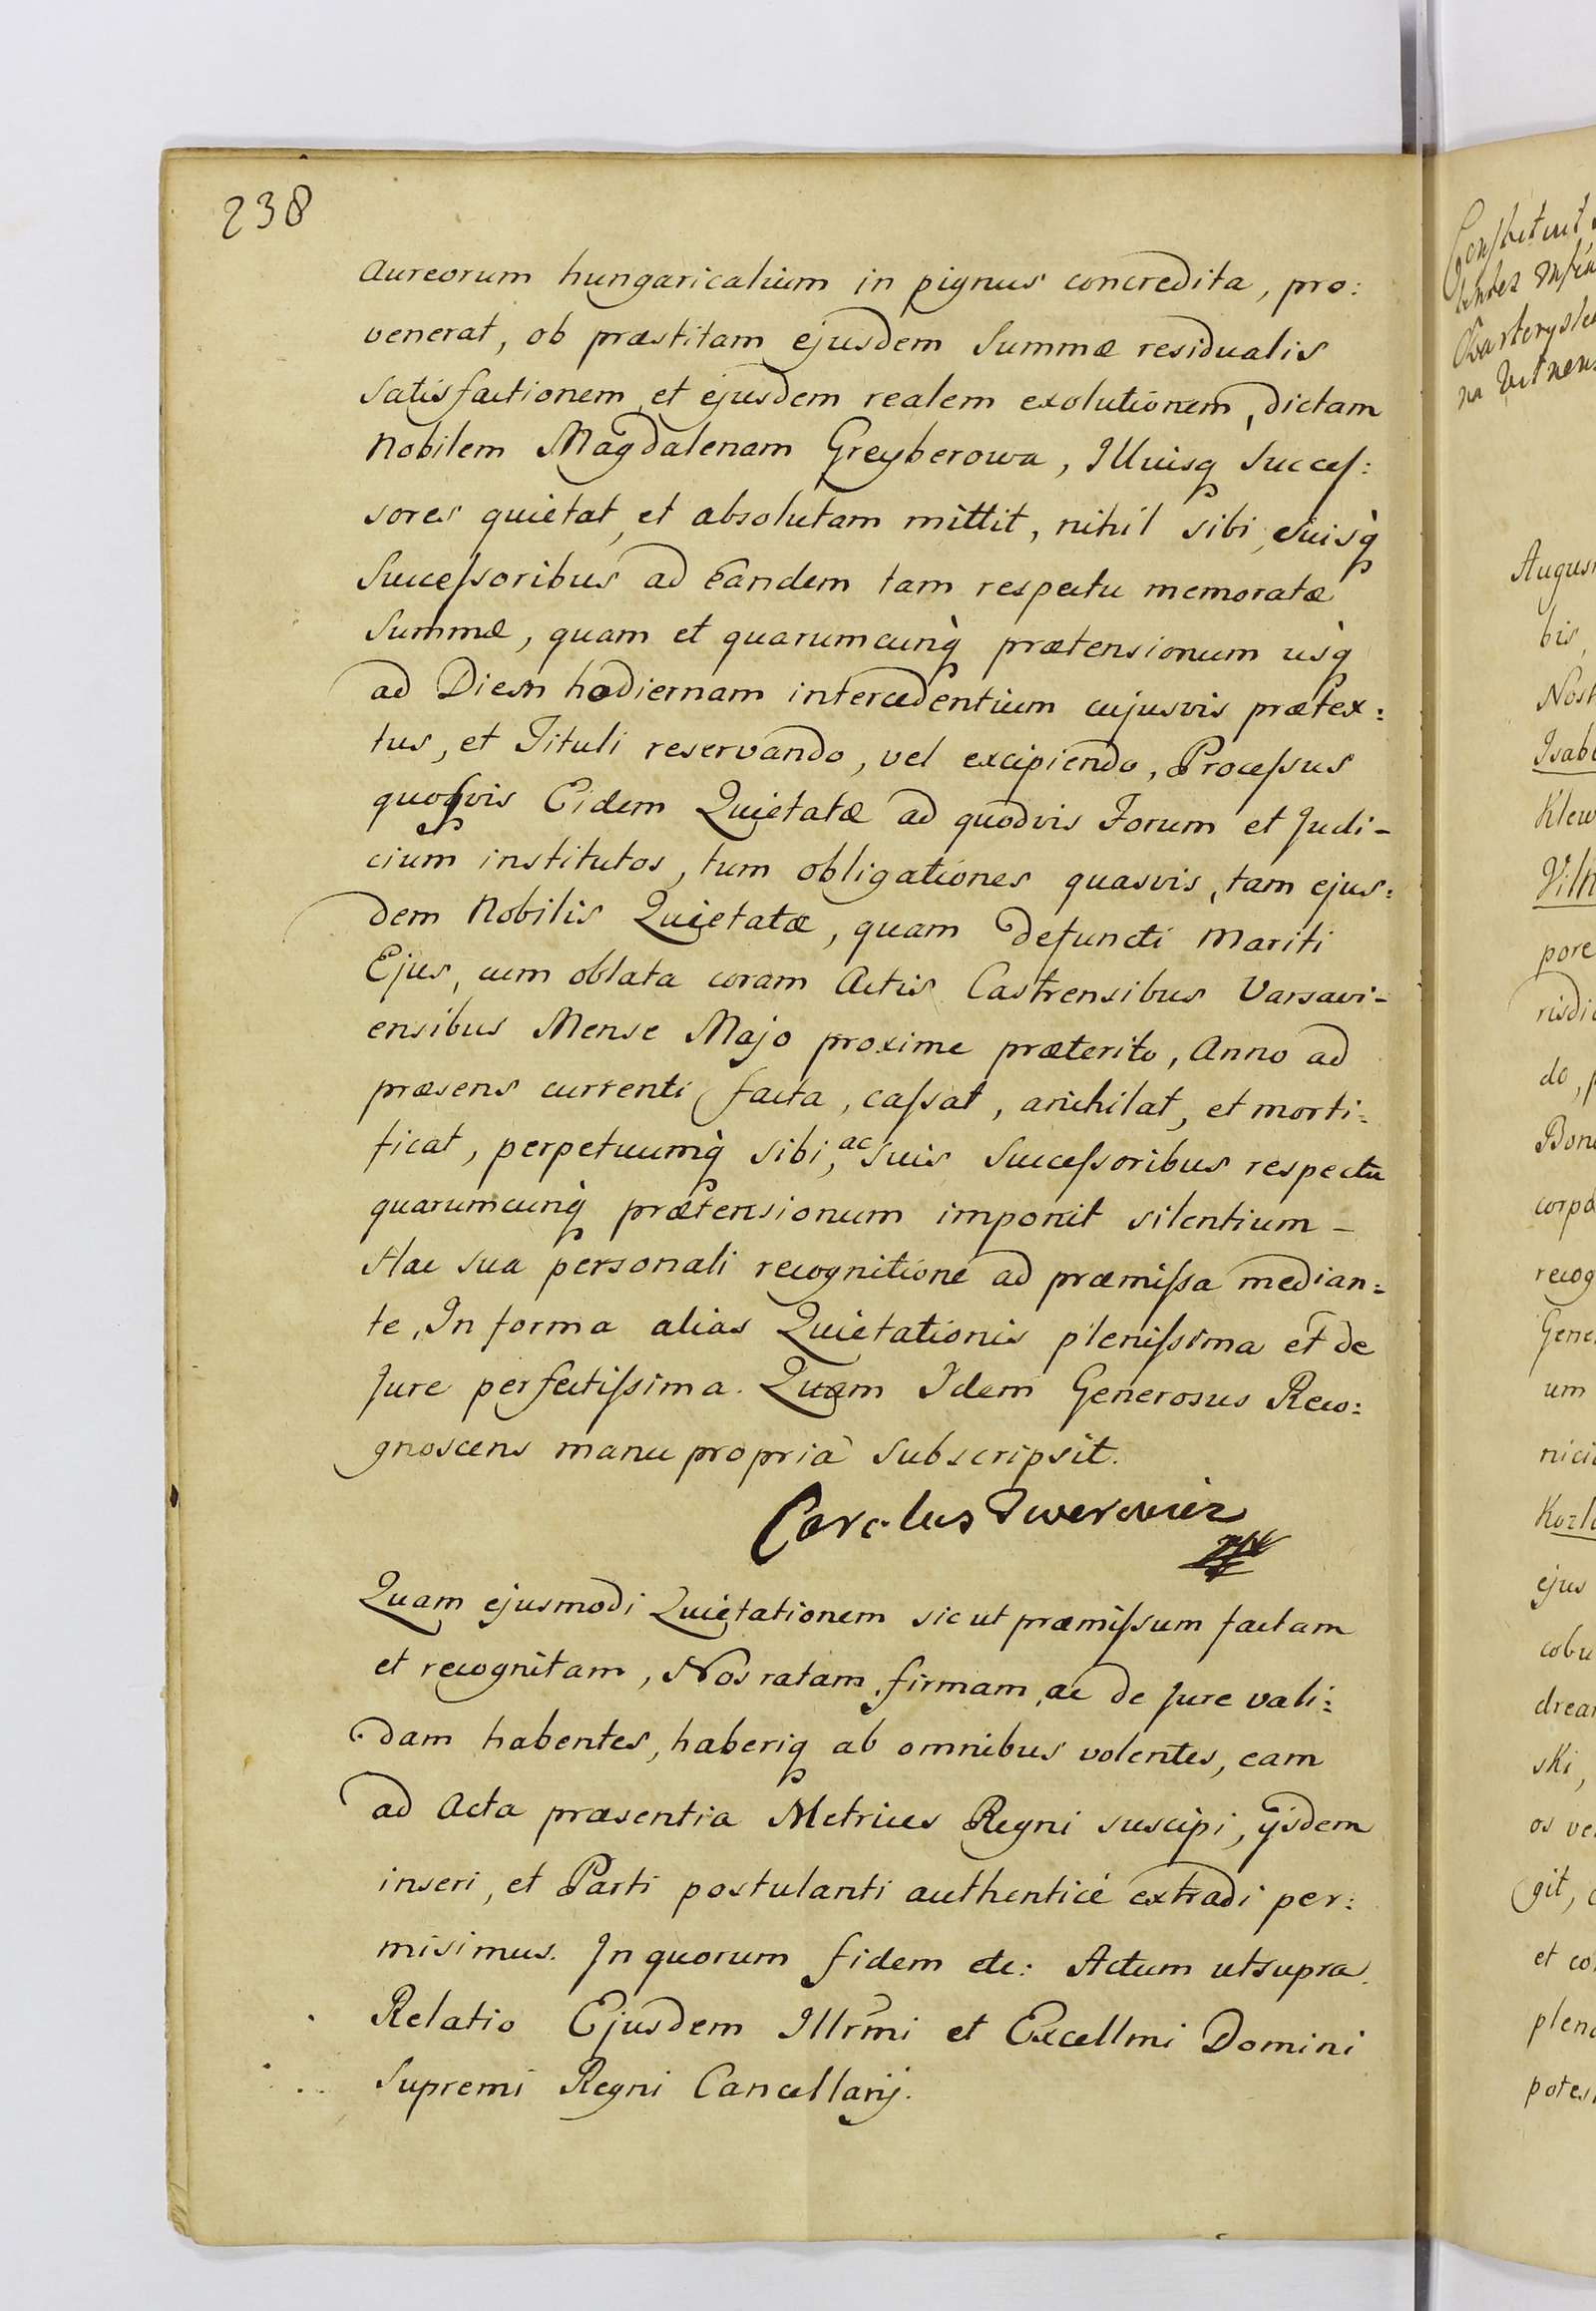 238
aureorum hungaricalium in pignus concredita, pro:
venerat, ob præstitam ejusdem Summæ residualis
satisfactionem, et ejusdem realem exolutionem, dictam
Nobilem Magdalenam Greyberowa, Illiusq Succeſ:
sores quietat, et absolutam mittit, nihil sibi, suisq̀
Succeſsoribus ad Eandem tam respectu memoratæ
Summæ, quam et quarumcunq̀ prætensionum usq̀
ad Diem hodiernam intercedentium cujusvis prætex:
tus, et Tituli reservando, vel excipiendo, Proceſsus
quosvis Eidem Quietatæ ad quodvis Forum et Judi-
cium institutos, tum obligationes quasvis, tam ejus:
dem Nobilis Quietatæ, quam defuncti Mariti
Ejus, cum oblata coram Actis Castrensibus Varsavi-
ensibus Mense Majo proxime præterito, Anno ad
præsens currenti facta, caſsat, anichilat, et morti:
ficat, perpetuumq̀ sibi, ac suis Succeſsoribus respectu
quarumcunq̀ prætensionum imponit silentium –
Hac sua personali recognitione ad præmiſsa median:
te, In forma alias Quietationis pleniſsima et de
Jure perfectiſsima. Quam Idem Generosus Reco:
gnoscens manu propria subscripsit.
Carolus
Quam ejusmodi Quietationem sic ut præmiſsum factam
et recognitam, Nos ratam, firmam, ac de Jure vali:
dam habentes, haberiq ab omnibus volentes, eam
ad Acta præsentia Metrices Regni suscipi, ijsdem
inseri, et Parti postulanti authenticè extradi per:
misimus. In quorum fidem etc: Actum utsupra.
Relatio Ejusdem Illrmi et Excellmi Domini
Supremi Regni Cancellarij.
Augus
bis,
Nost
Isab
Klew
Viln
pore
risdi
do, p
Bon
corpo
recog
Gene
um
nici
Kozl
ejus
cobu
drea
ski,
os ve
git, c
et co
plen
potes